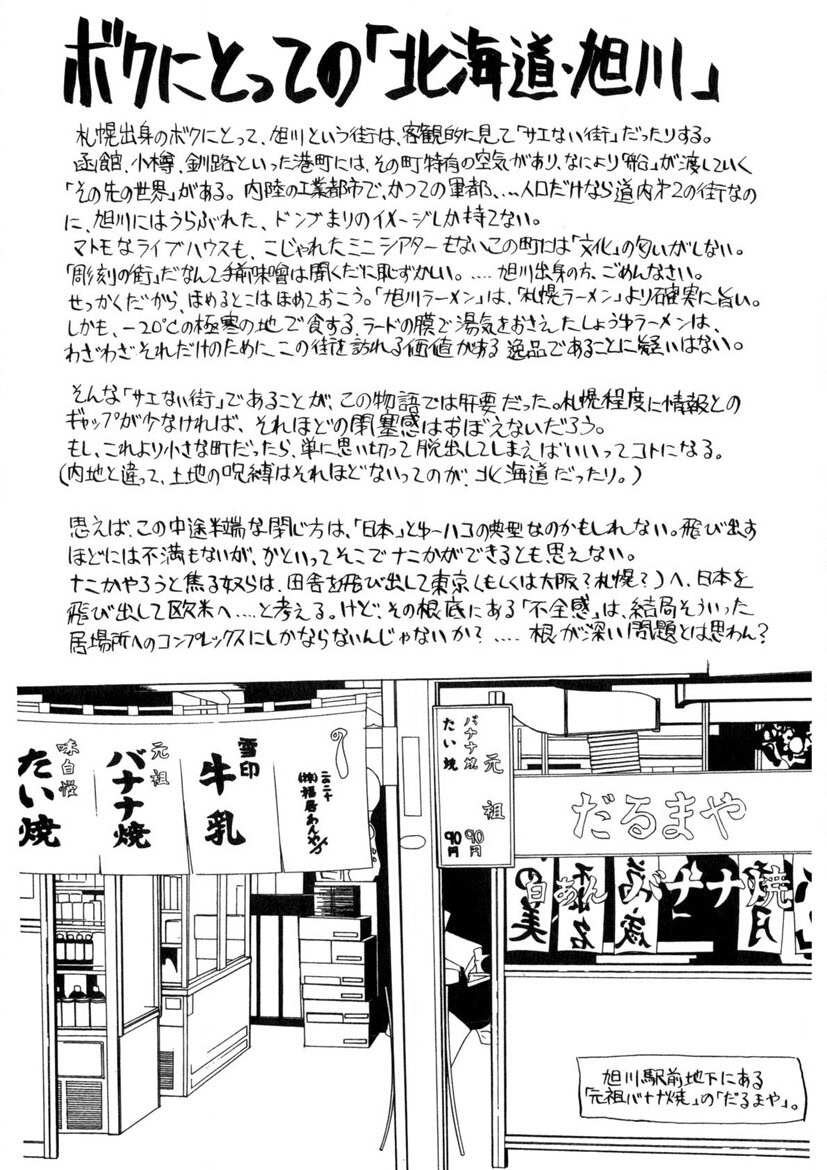 ボクにとっての「北海道・旭川」
札幌出身のボクにとって、旭川という街は、客観的に見て「サエない街」だったりする。
函館、小樽、釧路といった港町には、その町特有の空気があり、なにより「船」が渡していく
「その先の世界」がある。内陸の工業都市で、かつての軍都、…人口だけなら道内才2の街なの
に、旭川にはうらぶれた、ドンづまりのイメージしか持てない。
マトモなライブハウスも、こじゃれたミニシアターもないこの町には「文化」の匂いがしない。
「彫刻の街」だなんて手前味噌は聞くだに恥ずかしい。….旭川出身の方、ごめんなさい。
せっかくだから、ほめるとこはほめておこう。「旭川ラーメン」は、「札幌ラーメン」より確実に旨い。
しかも、－20℃の極寒の地で食する、ラードの膜で湯気をおさえたしょうゆラーメンは、
わざわざそれだけのために、この街を訪れる価値がある逸品であることに疑いはない。
そんな「サエない街」であることが、この物語では肝要だった。札幌程度に情報との
ギャップが少なければ、それほどの閉塞感はおぼえないだろう。
もし、これより小さな町だったら、単に思い切って脱出してしまえばいいってコトになる。
(内地と違って、土地の呪縛はそれほどないってのが、北海道だったり。)
思えば、この中途半端な閉じ方は、「日本」とゆーハコの典型なのかもしれない。飛び出す
ほどには不満もないが、かといってそこでナニかができるとも思えない。
ナニかやろうと焦る奴らは、田舎を飛び出して東京(もしくは大阪？札幌？)へ、日本を
飛び出して欧米へ….と考える。けど、その根底にある「不全感」は、結局そういった
居場所へのコンプレックスにしかならないんじゃないか？….根が深い問題とは思わん？
味自慢
たい焼
元祖
バナナ焼
雪印
牛乳
(株)福居あんや
バナナ焼 元祖
たい焼
90円
90円
だるまや
白あん バナナ焼
旭川駅前地下にある
「元祖バナナ焼」の「だるまや」。